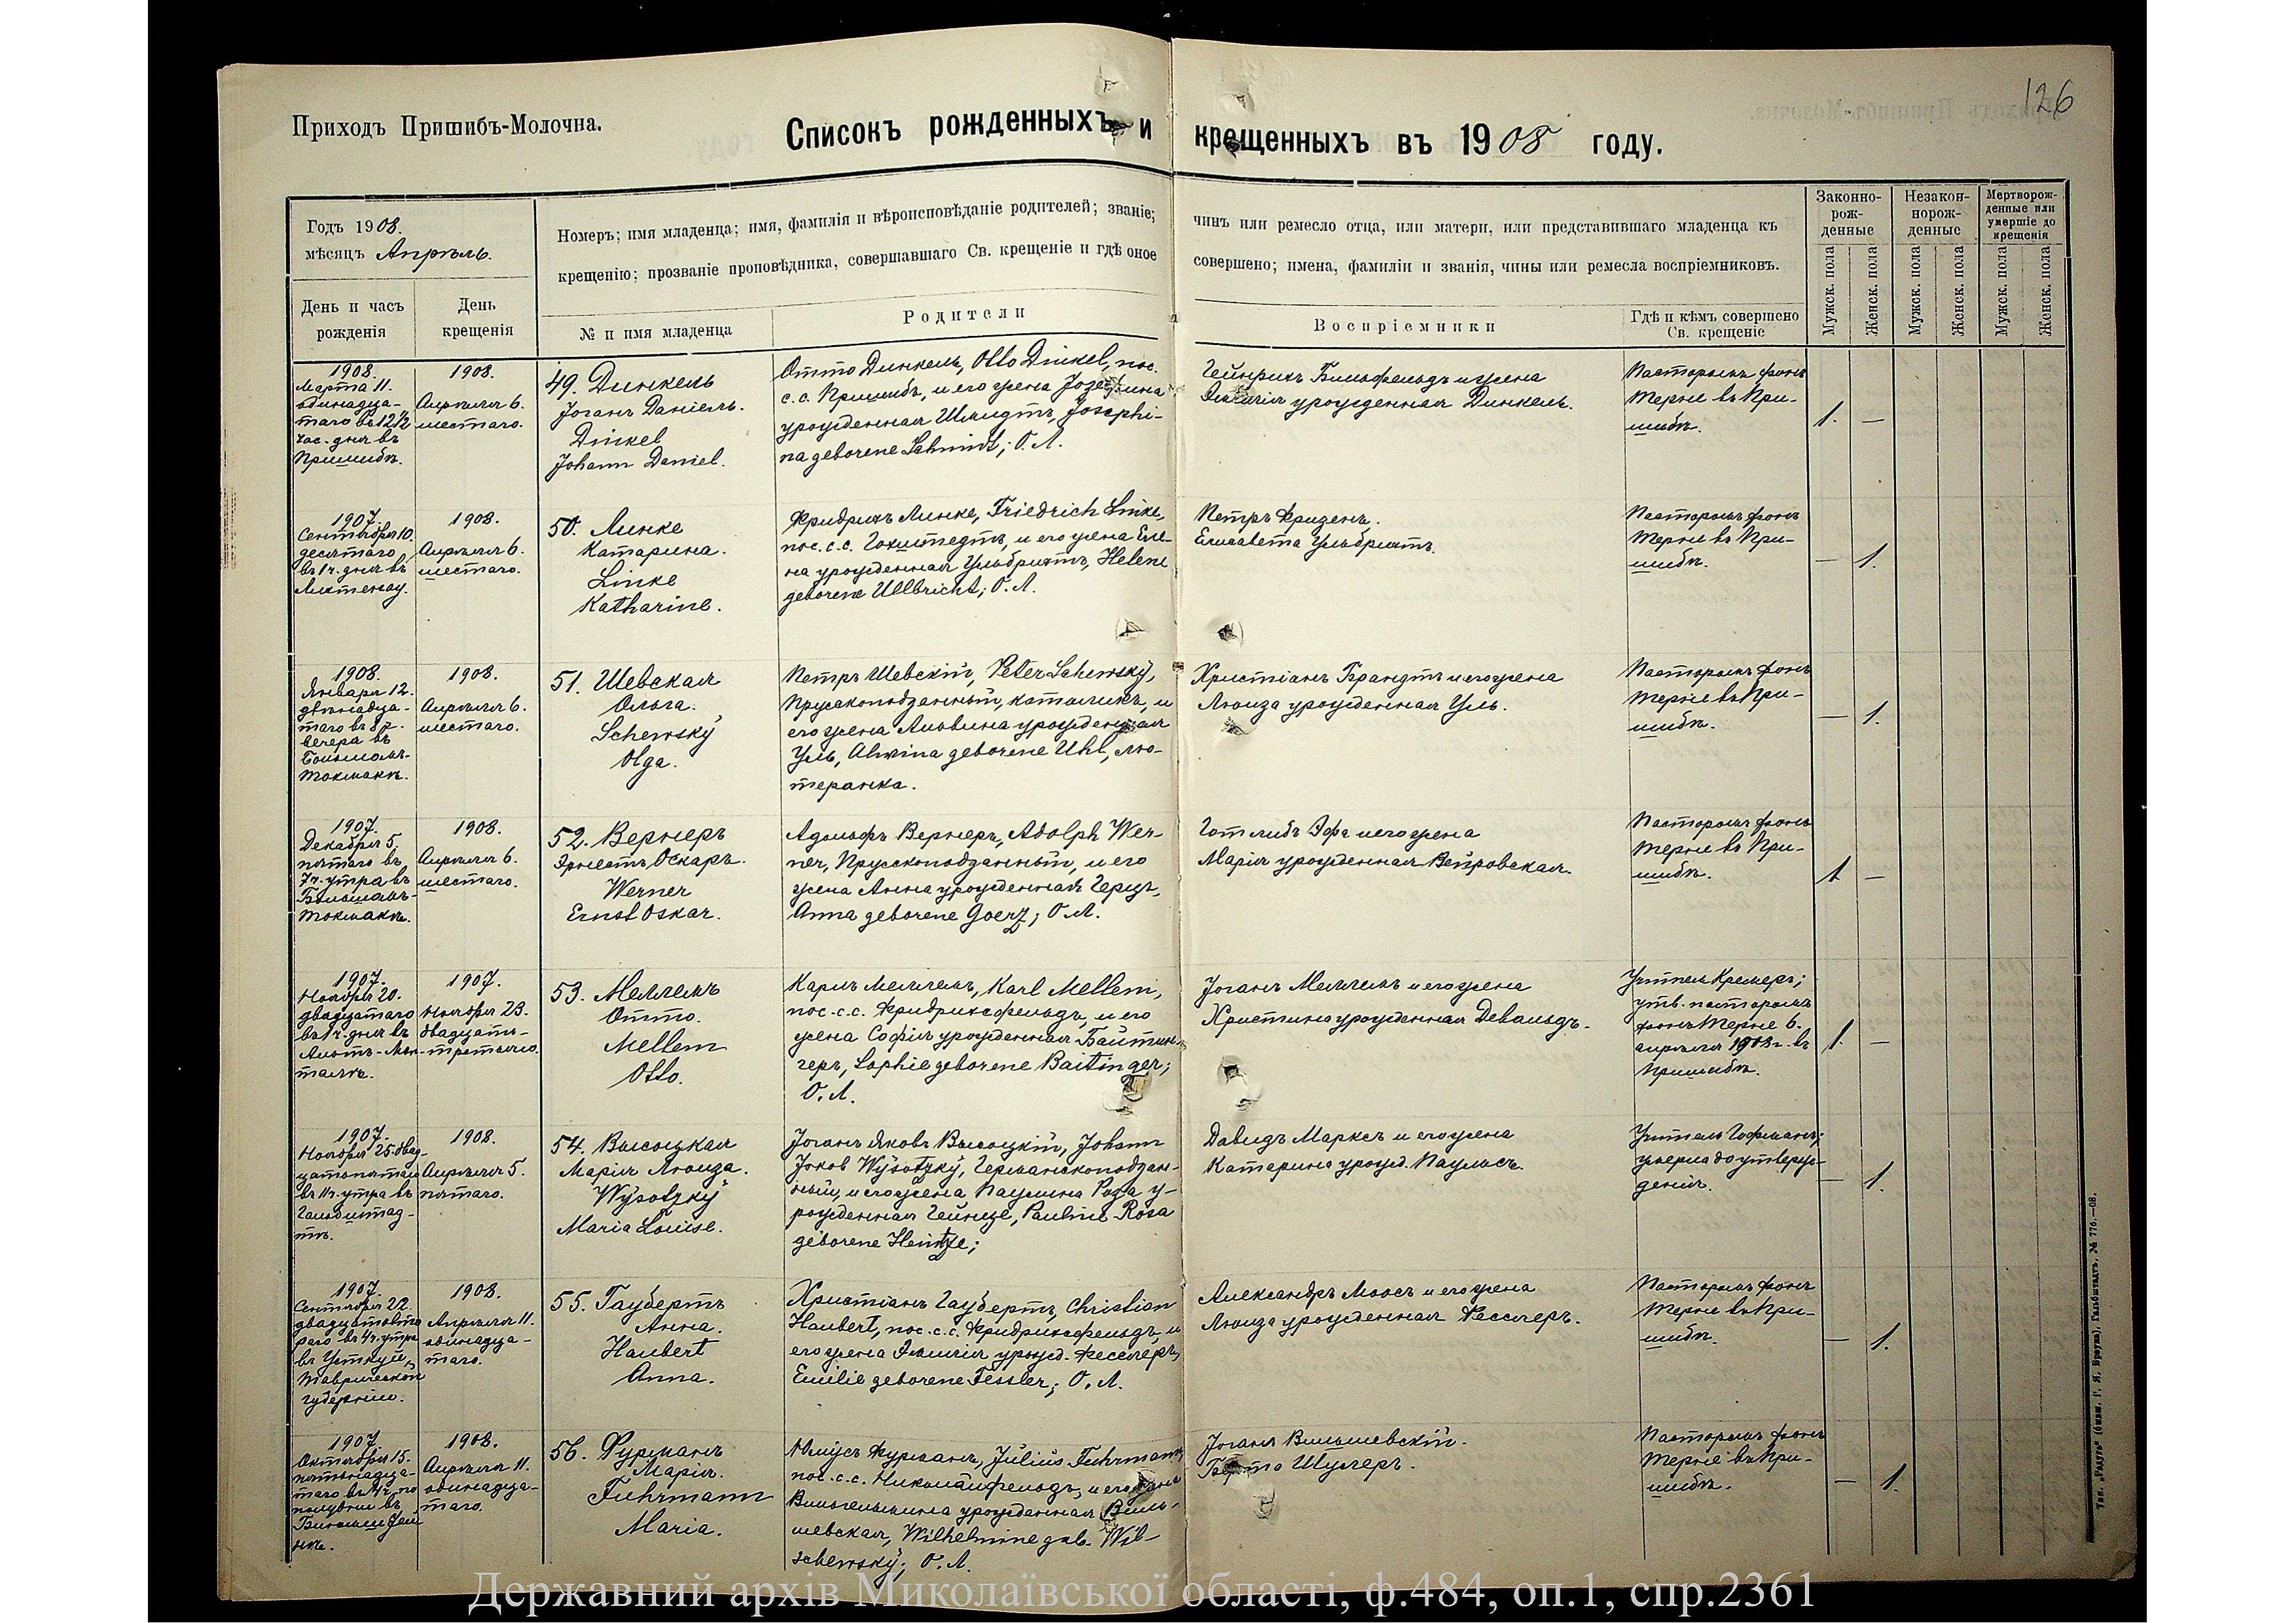 126
Приходъ Пришибъ-Молочна.
Списокъ рожденныхъ и крещенныхъ въ 1908 году.
Годъ 1908.
мѣсяцъ Апрѣль.
День и часъ рожденія
День крещенія
Номеръ; имя младенца; имя, фамилія и вѣроисповѣданіе родителей; званіе; чинъ или ремесло отца, или матери, или представившаго младенца къ
крещенію; прозваніе проповѣдника, совершавшаго Св. крещеніе и гдѣ оное совершено; имена, фамиліи и званія, чины или ремесла воспріемниковъ.
№ и имя младенца
Родители
Воспріемники
Гдѣ и кѣмъ совершено
Св. крещеніе
Законно-
рож-
денные
Незакон-
норож-
денные
Мертворож-
денные или
умершіе до
крещенія
Мужск. пола
Женск. пола
Мужск. пола
Женск. пола
Мужск. пола
Женск. пола
1908.
Марта 11.
одинадца-
таго въ 12½
час. дня въ
Пришибѣ.
1908.
Апрѣля 6.
шестаго.
49. Динкель
Іоганъ Даніель.
Dinkel
Johann Daniel.
Отто Динкель, Otto Dinkel, пос.
с.с. Пришибъ, и его жена Іозефина
урожденная Шмидтъ, Josephi-
na geborene Schmidt; О.Л.
Гейнрихъ Бильфельдъ и жена
Эмилія урожденная Динкель.
Пасторомъ фонъ
Терне въ При-
шибѣ.
1. —
1907.
Сентября 10.
десятаго
въ 1 ч. дня въ
Лихтенау.
1908.
Апрѣля 6.
шестаго.
50. Линке
Катарина.
Linke
Katharine.
Фридрихъ Линке, Friedrich Linke,
пос. с.с. Гохштедтъ, и его жена Еле-
на урожденная Ульбрихтъ, Helene
geborene Ullbricht; О.Л.
Петръ Фризенъ.
Елисавета Ульбрихтъ.
Пасторомъ фонъ
Терне въ При-
шибѣ.
— 1.
1908.
Января 12.
двѣнадца-
таго въ 8 ч.
вечера въ
Большомъ-
Токмакѣ.
1908.
Апрѣля 6.
шестаго.
51. Шевская
Ольга.
Schewsky
Olga.
Петръ Шевскій, Peter Schewsky,
Прусакоподданный, католикъ, и
его жена Альвина урожденная
Уль, Alwina geborene Uhl, лю-
теранка.
Христіанъ Брандтъ и его жена
Люиза урожденная Уль.
Пасторомъ фонъ
Терне въ При-
шибѣ.
— 1.
1907.
Декабря 5.
пятаго въ
7 ч. утра въ
Большомъ-
Токмакѣ.
1908.
Апрѣля 6.
шестаго.
52. Вернеръ
Эрнестъ Оскаръ.
Werner
Ernst Oskar.
Адольфъ Вернеръ, Adolph Wer-
ner, Прусскоподданный, и его
жена Анна урожденная Герцъ,
Anna geborene Goerz; О.Л.
Готлибъ Эфа и его жена
Марія урожденная Вейровская.
Пасторомъ фонъ
Терне въ При-
шибѣ.
1 —
1907.
Ноября 20.
двадцатаго
въ 1 ч. дня въ
Альтъ-Мон-
талѣ.
1907.
Ноября 23.
двадцать-
третьяго.
53. Меллемъ
Отто.
Mellem
Otto.
Карлъ Меллемъ, Karl Mellem,
пос. с.с. Фридрихсфельдъ, и его
жена Софія урожденная Байтин-
геръ, Sophie geborene Baitinger;
О.Л.
Іоганъ Меллемъ и его жена
Христина урожденная Девальдъ.
Учитель Кремеръ;
утв. пасторомъ
фонъ Терне 6.
апрѣля 1908 г. въ
Пришибѣ.
1. —
1907.
Ноября 25. двад-
цатопятаго
въ 11 ч. утра въ
Гальбштад-
тѣ.
1908.
Апрѣля 5.
пятаго.
54. Высоцкая
Марія Люиза.
Wysotzky
Maria Louise.
Іоганъ Яковъ Высоцкій, Johann
Jakob Wysotzky, Германскоподдан-
ный, и его жена Паулина Роза у-
рожденная Гейнце, Pauline Rosa
geborene Heintze;
Давидъ Марксъ и его жена
Катарина урожд. Паульсъ.
Учитель Гофманъ;
умерла до утверж-
денія.
— 1.
1907.
Сентября 22.
двадцатовто-
раго въ 4 ч. утра
въ Усткуи,
Таврической
губерніи.
1908.
Апрѣля 11.
одинадца-
таго.
55. Гаубертъ
Анна.
Haubert
Anna.
Христіанъ Гаубертъ, Christian
Haubert, пос. с.с. Фридрихсфельдъ, и
его жена Эмилія урожд. Фесслеръ,
Emilie geborene Fessler; О.Л.
Александръ Моосъ и его жена
Люиза урожденная Фесслеръ.
Пасторомъ фонъ
Терне въ При-
шибѣ.
— 1.
1907.
Октября 15.
пятнадца-
таго въ 4 ч. по
полудни въ
1908.
Апрѣля 11.
одинадца-
таго.
56. Фурманъ
Марія.
Fuhrmann
Maria.
Юліусъ Фурманъ, Julius Fuhrmann,
пос. с.с. Николайфельдъ, и его жена
Вильгельмина урожденная Виль-
шевская, Wilhelmine geb. Wil-
schewsky; О.Л.
Іоганъ Вильшевскій.
Берта Шулеръ.
Пасторомъ фонъ
Терне въ При-
шибѣ.
— 1.
Тип. „Радуга“ (бывш. Г. Я. Брауна), Гальбштадтъ. № 776.—08.
Державний архів Миколаївської області, ф.484, оп.1, спр.2361